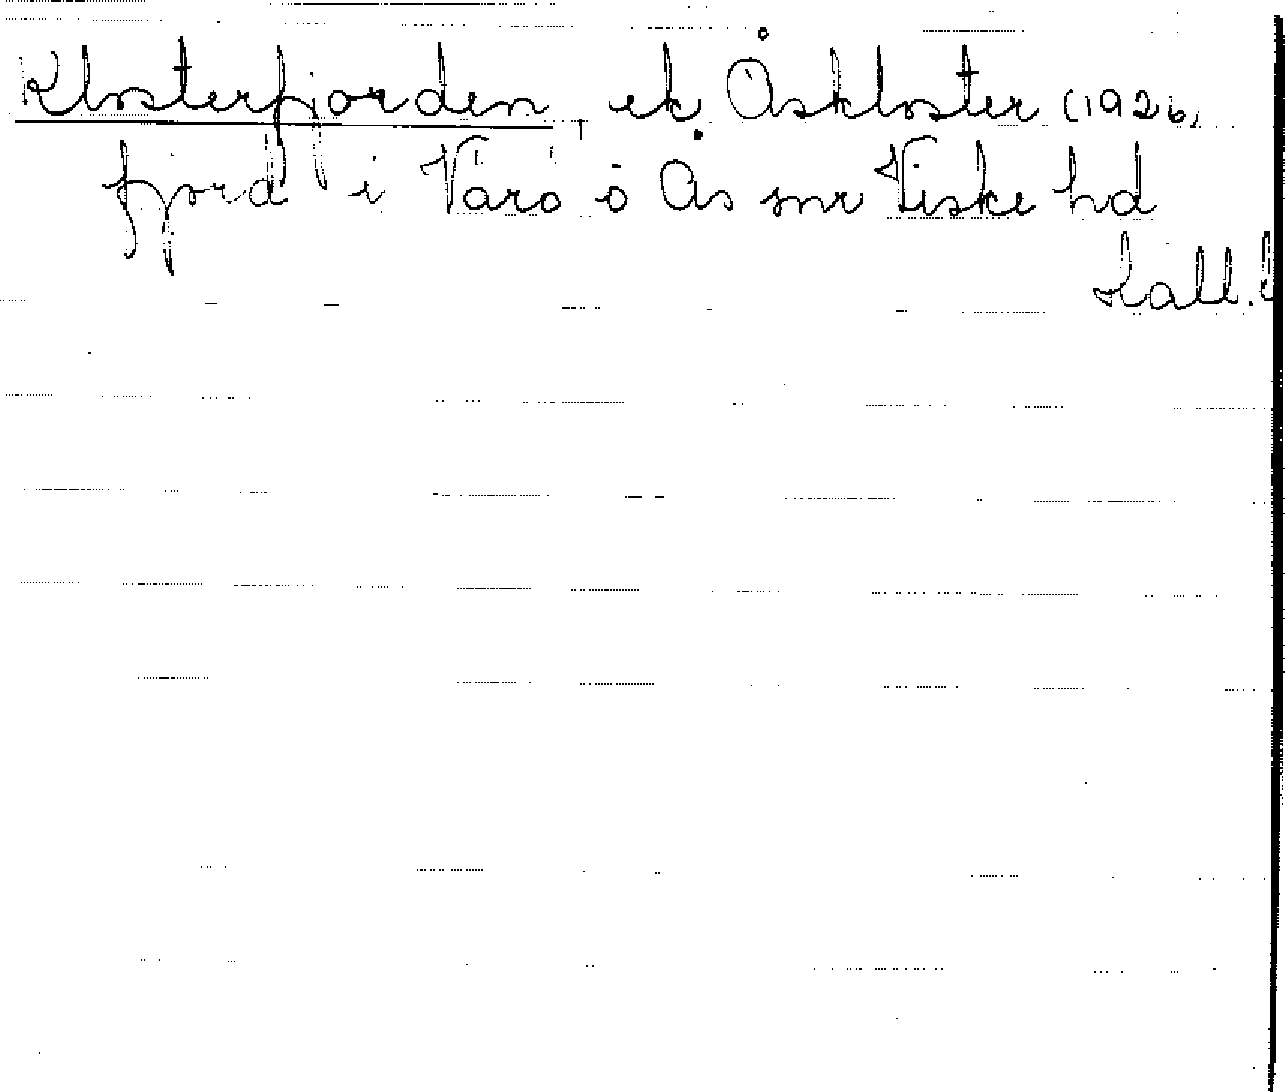 Klosterfjorden, ek Åskloster (1926,
fjord i Värö o Ås snr Viske hd
Hall. l